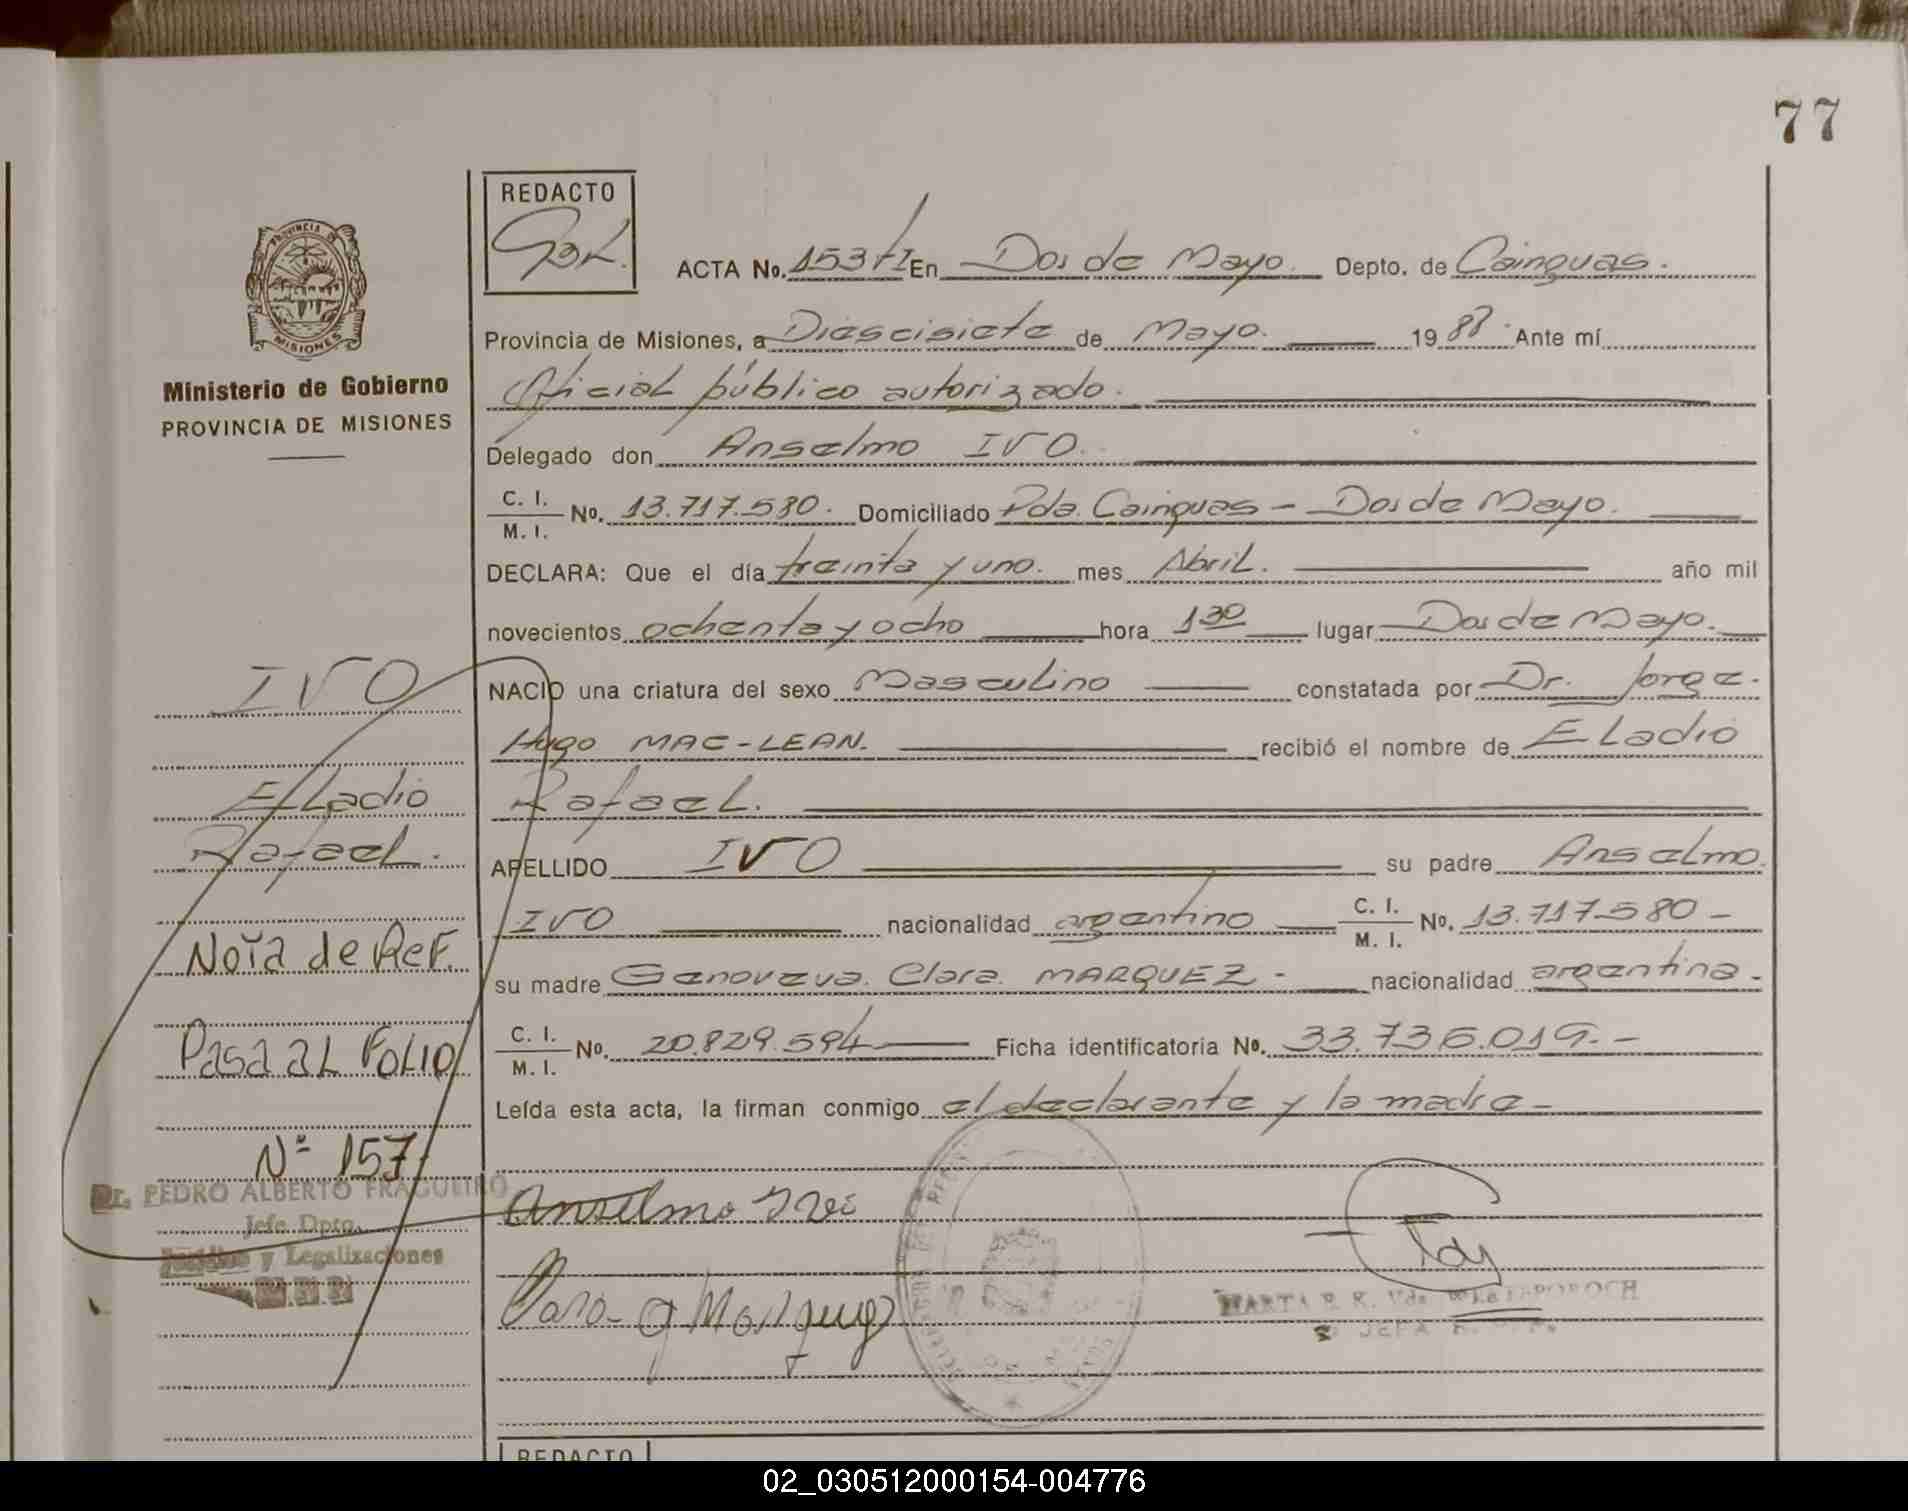 77
REDACTO
PROVINCIA DE
MISIONES
Ministerio de Gobierno
PROVINCIA DE MISIONES
ACTA No. 153 tI En Dos de Mayo. Depto. de Cainguas.
Provincia de Misiones, a Diescisiete de Mayo. 1988 Ante mí
Oficial público autorizado.
Delegado don Anselmo IVO.
C. I.
M. I. No. 13.717.580. Domiciliado Pda. Cainguas - Dos de Mayo.
DECLARA: Que el día treinta y uno. mes Abril. año mil
novecientos ochenta y ocho hora 1 30 lugar Dos de Mayo.
NACIO una criatura del sexo Masculino constatada por Dr. Jorge.
Hugo MAC-LEAN. recibió el nombre de Eladio
Rafael.
APELLIDO IVO su padre Anselmo.
IVO nacionalidad argentino C. I. M. I. No. 13.717.580 -
su madre Genoveva. Clara. MARQUEZ - nacionalidad argentina -
C. I.
M. I. No. 20.829.594 Ficha identificatoria No. 33.736.019. -
Leída esta acta, la firman conmigo el declarante y la madre -
IVO
Eladio
Rafael.
Nota de Ref.
Pasa al Folio
Nº 157
Dr. PEDRO ALBERTO FRAGUEIRO
Jefe Dpto.
y Legalizaciones
Anselmo
MARTA
JEFA
REDACTO
02_030512000154-004776